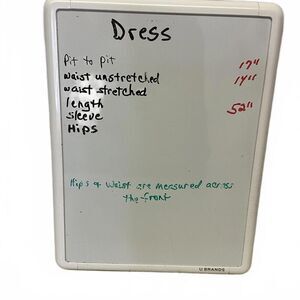 Dress
Pit to pit 17"
waist unstretched 14"
waist stretched
length 52"
sleeve
Hips
Hips & Waist are measured across
the front
U BRANDS